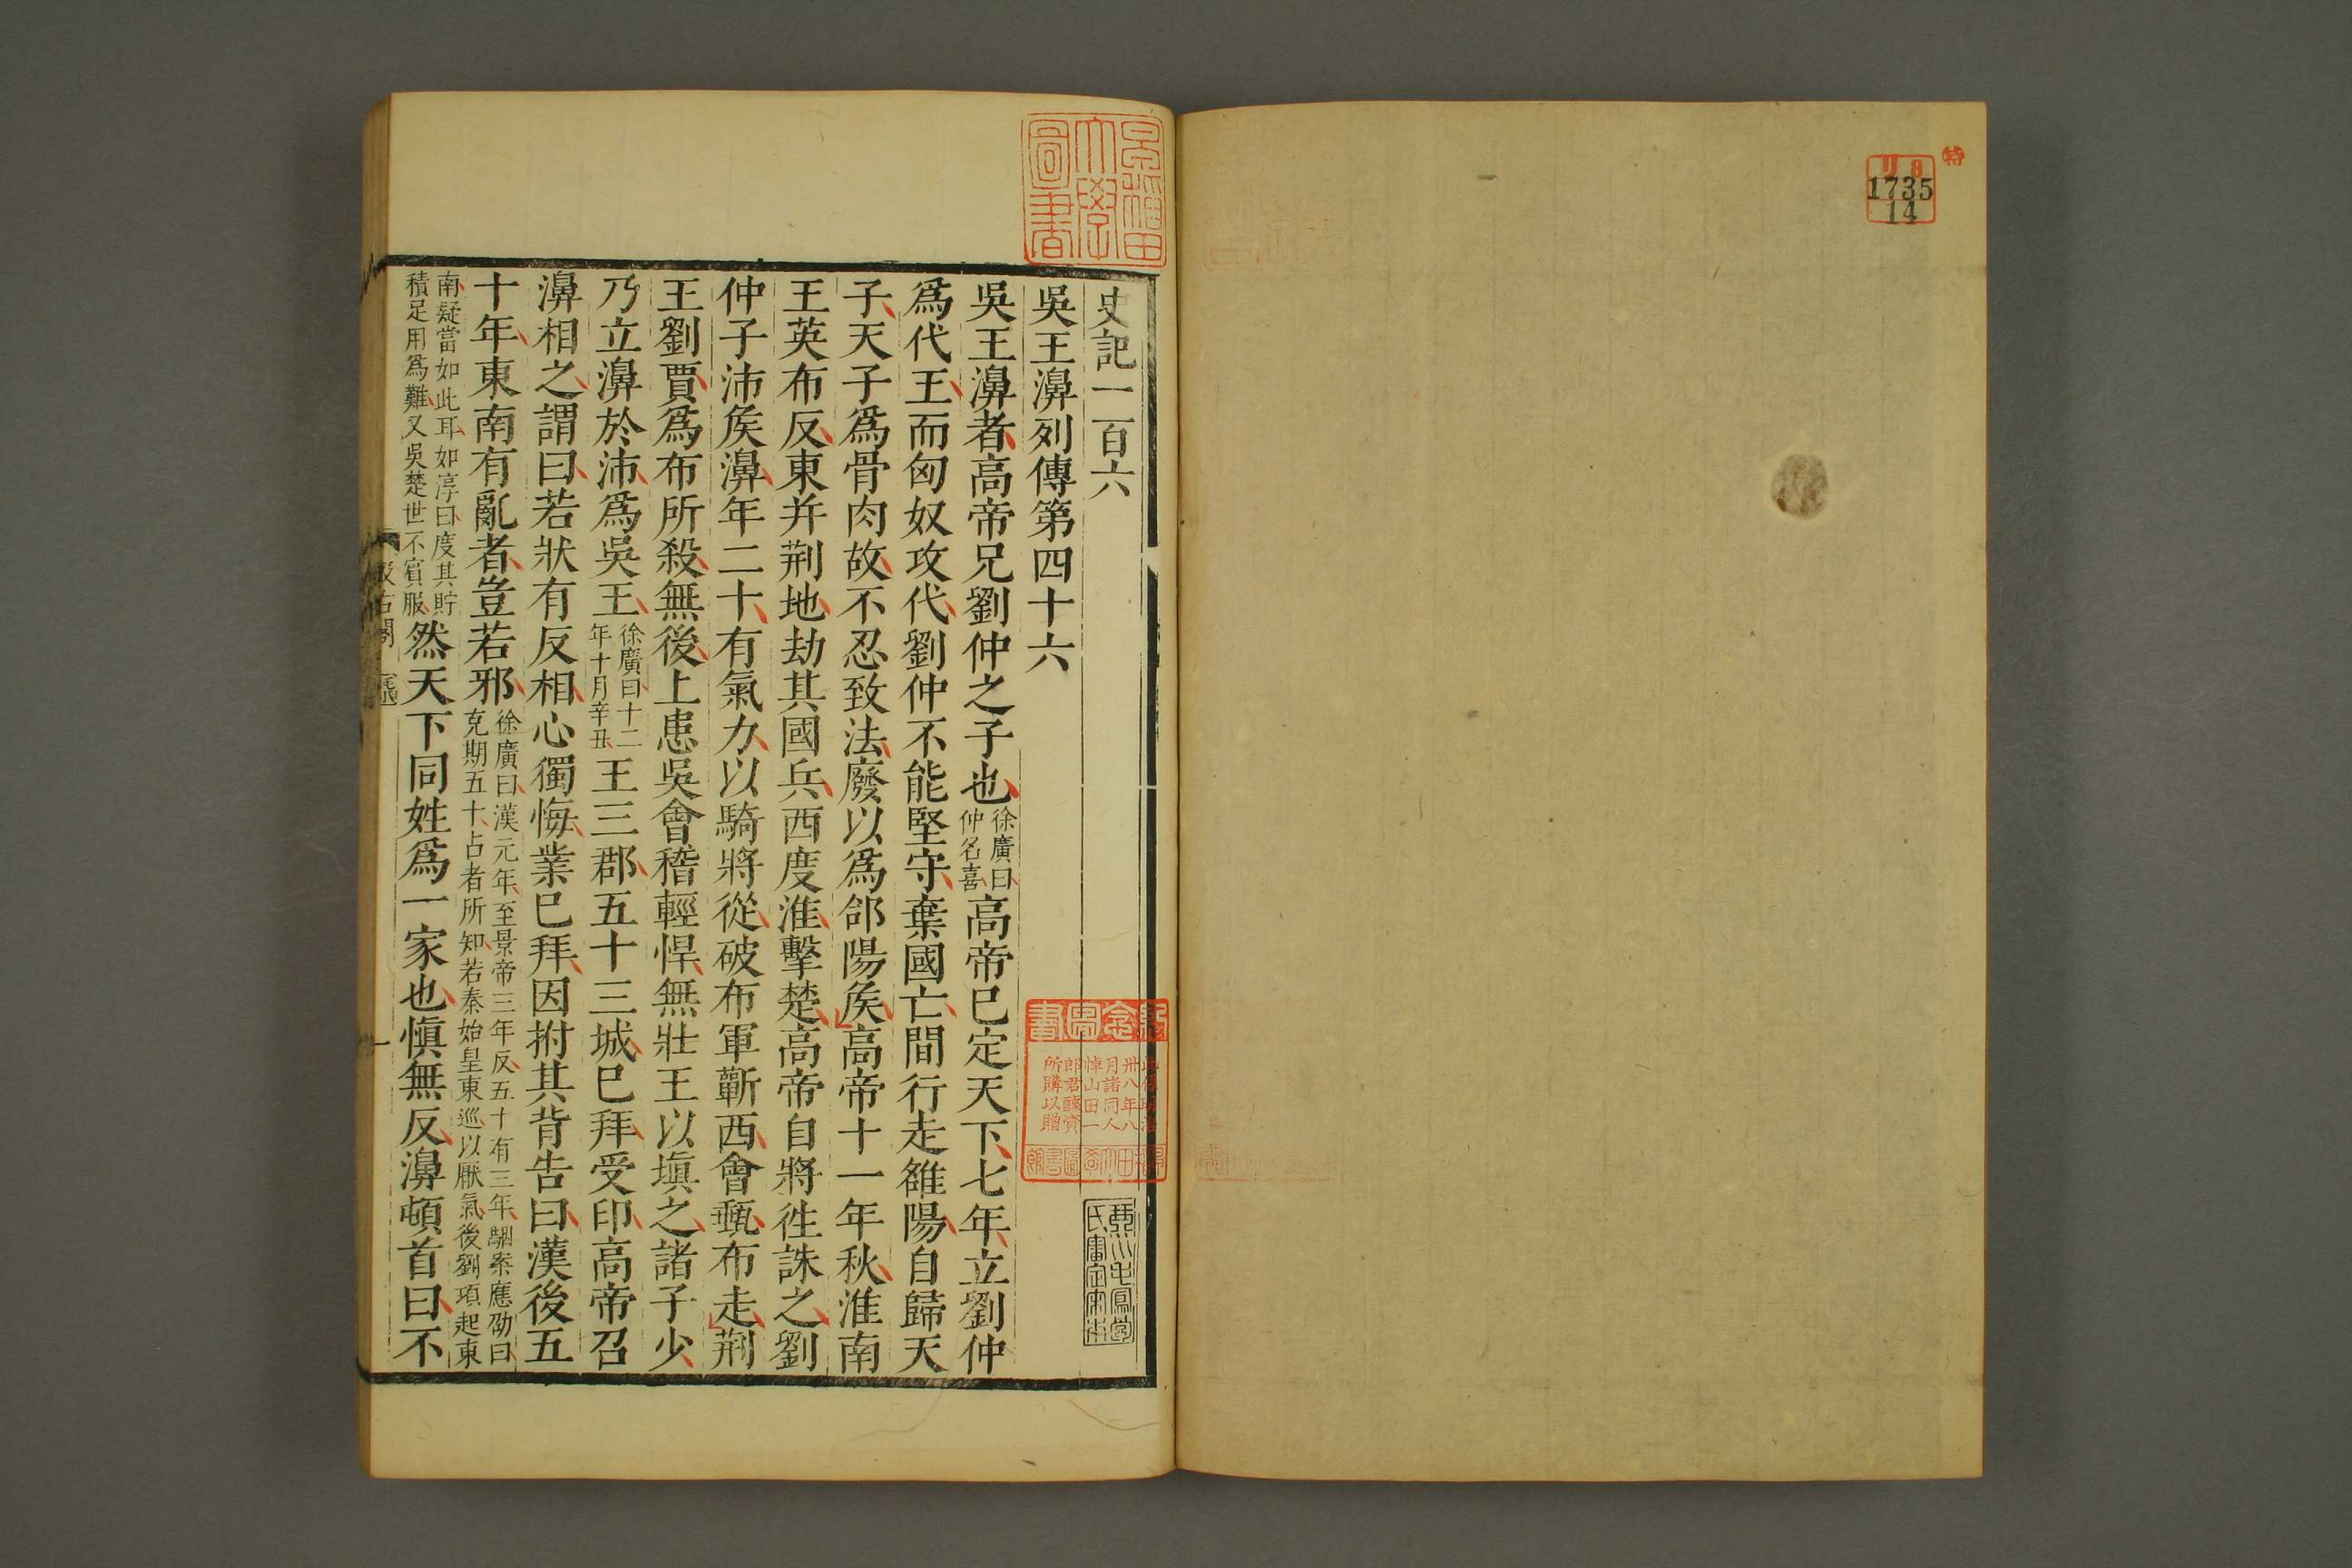 特
リ 8
1735
14
史記一百六
吳王濞列傳第四十六
吳王濞者高帝兄劉仲之子也徐廣曰仲名喜高帝已定天下七年立劉仲
爲代王而匈奴攻代劉仲不能堅守棄國亡間行走雒陽自歸天
子天子爲骨肉故不忍致法廢以爲郃陽矦高帝十一年秋淮南
王英布反東并荆地劫其國兵西度淮擊楚高帝自將徃誅之劉
仲子沛矦濞年二十有氣力以騎將從破布軍蘄西會甀布走荆
王劉賈爲布所殺無後上患吳會稽輕悍無壯王以塡之諸子少
乃立濞於沛爲吳王徐廣曰十二年十月辛丑王三郡五十三城已拜受印高帝召
濞相之謂曰若狀有反相心獨悔業已拜因拊其背告曰漢後五
十年東南有亂者豈若邪徐廣曰漢元年至景帝三年反五十有三年駰案應劭曰克期五十占者所知若秦始皇東巡以厭氣後劉項起東
南疑當如此耳如淳曰度其貯積足用爲難又吳楚世不賓服然天下同姓爲一家也愼無反濞頓首曰不
早稻田大學圖書
卅八年八
月諸同人
悼山田一
郎君醵資
所購以贈